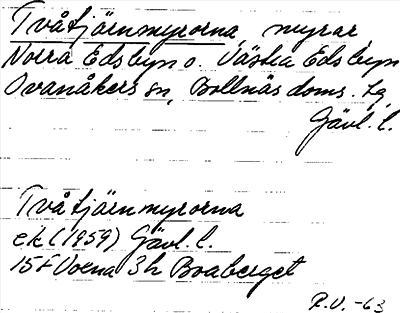 Tvåtjärnmyrorna, myrar
Norra Edsbyn o. Västra Edsbyn
Ovanåkers sn, Bollnäs doms. tg
Gävl. l.
Tvåtjärnmyrorna
ek (1959) Gävl. l.
15F Voxna 3h Braberget
R.V. -63